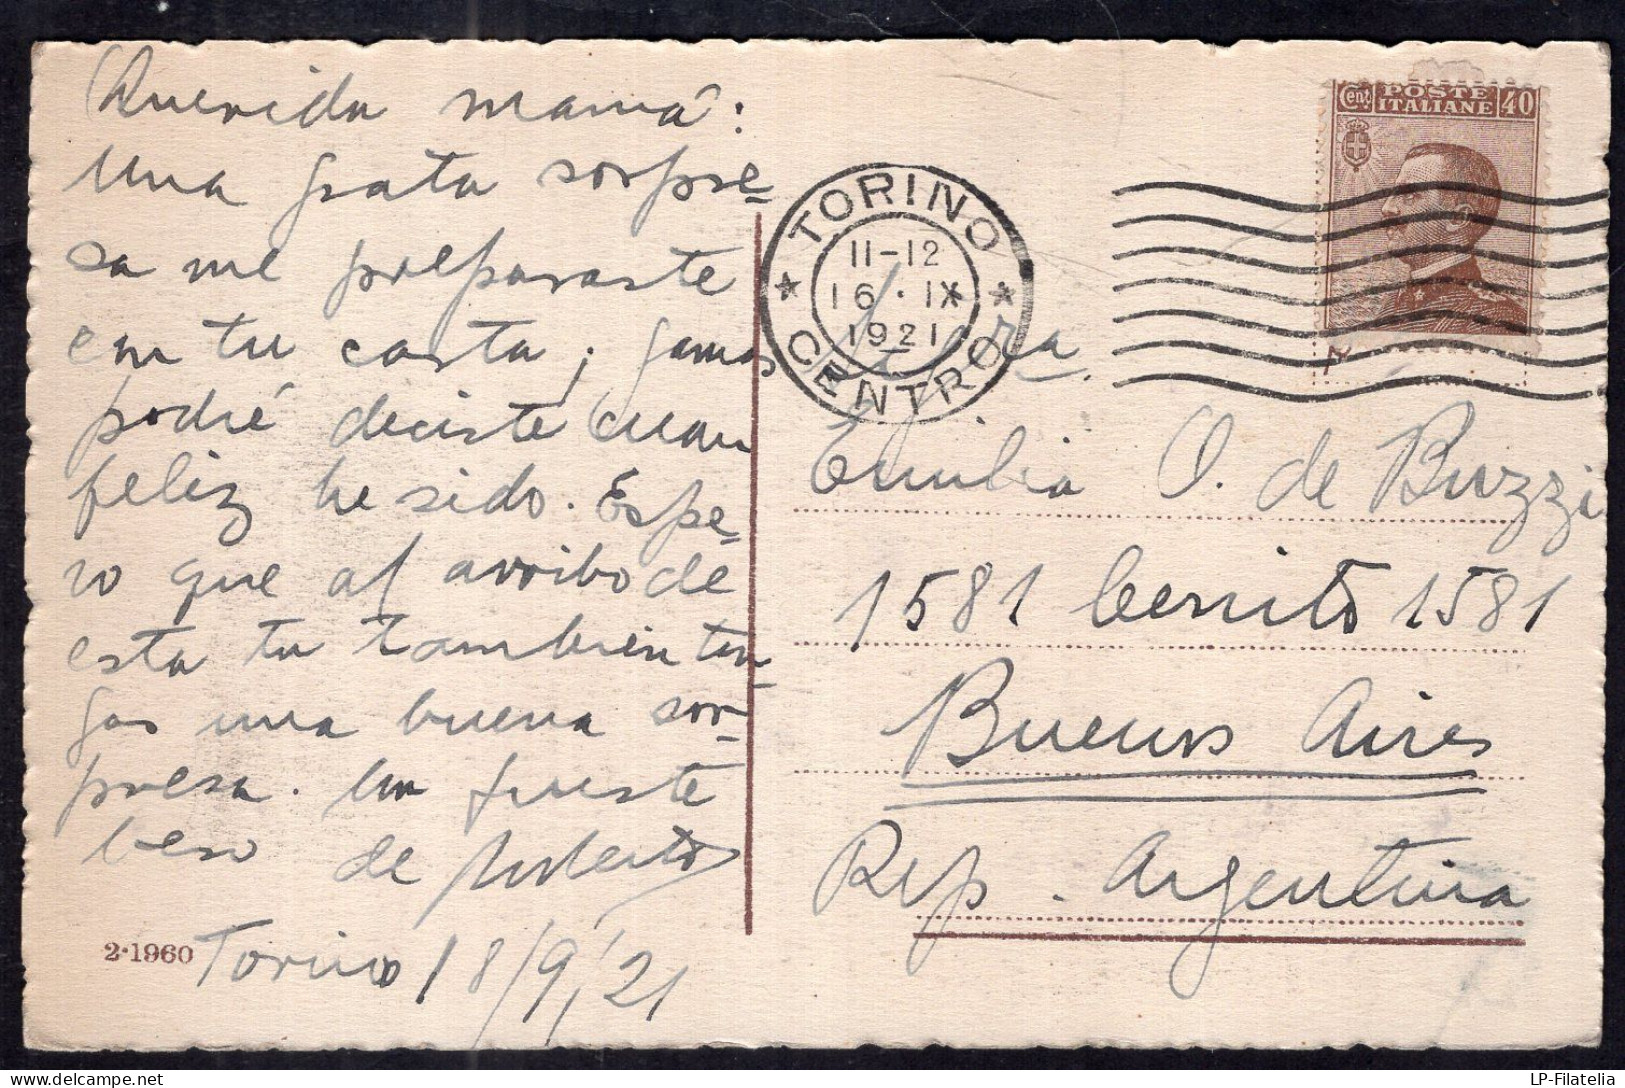 Querida mamá:
Una grata sorpre-
sa me preparaste
en tu carta; jamas
podré decirte cuan
feliz he sido. Espe-
ro que al arribo de
esta tu tambien ten-
gas una buena sor-
presa. Un fuerte
beso de Roberto
Torino 18/9/21
2·1960
TORINO
11-12
16·IX
1921
CENTRO
Cent POSTE 40
ITALIANE
Sra.
Emilia O. de Buzzi
1581 Cerrito 1581
Buenos Aires
Rep. Argentina
LP-Filatelia